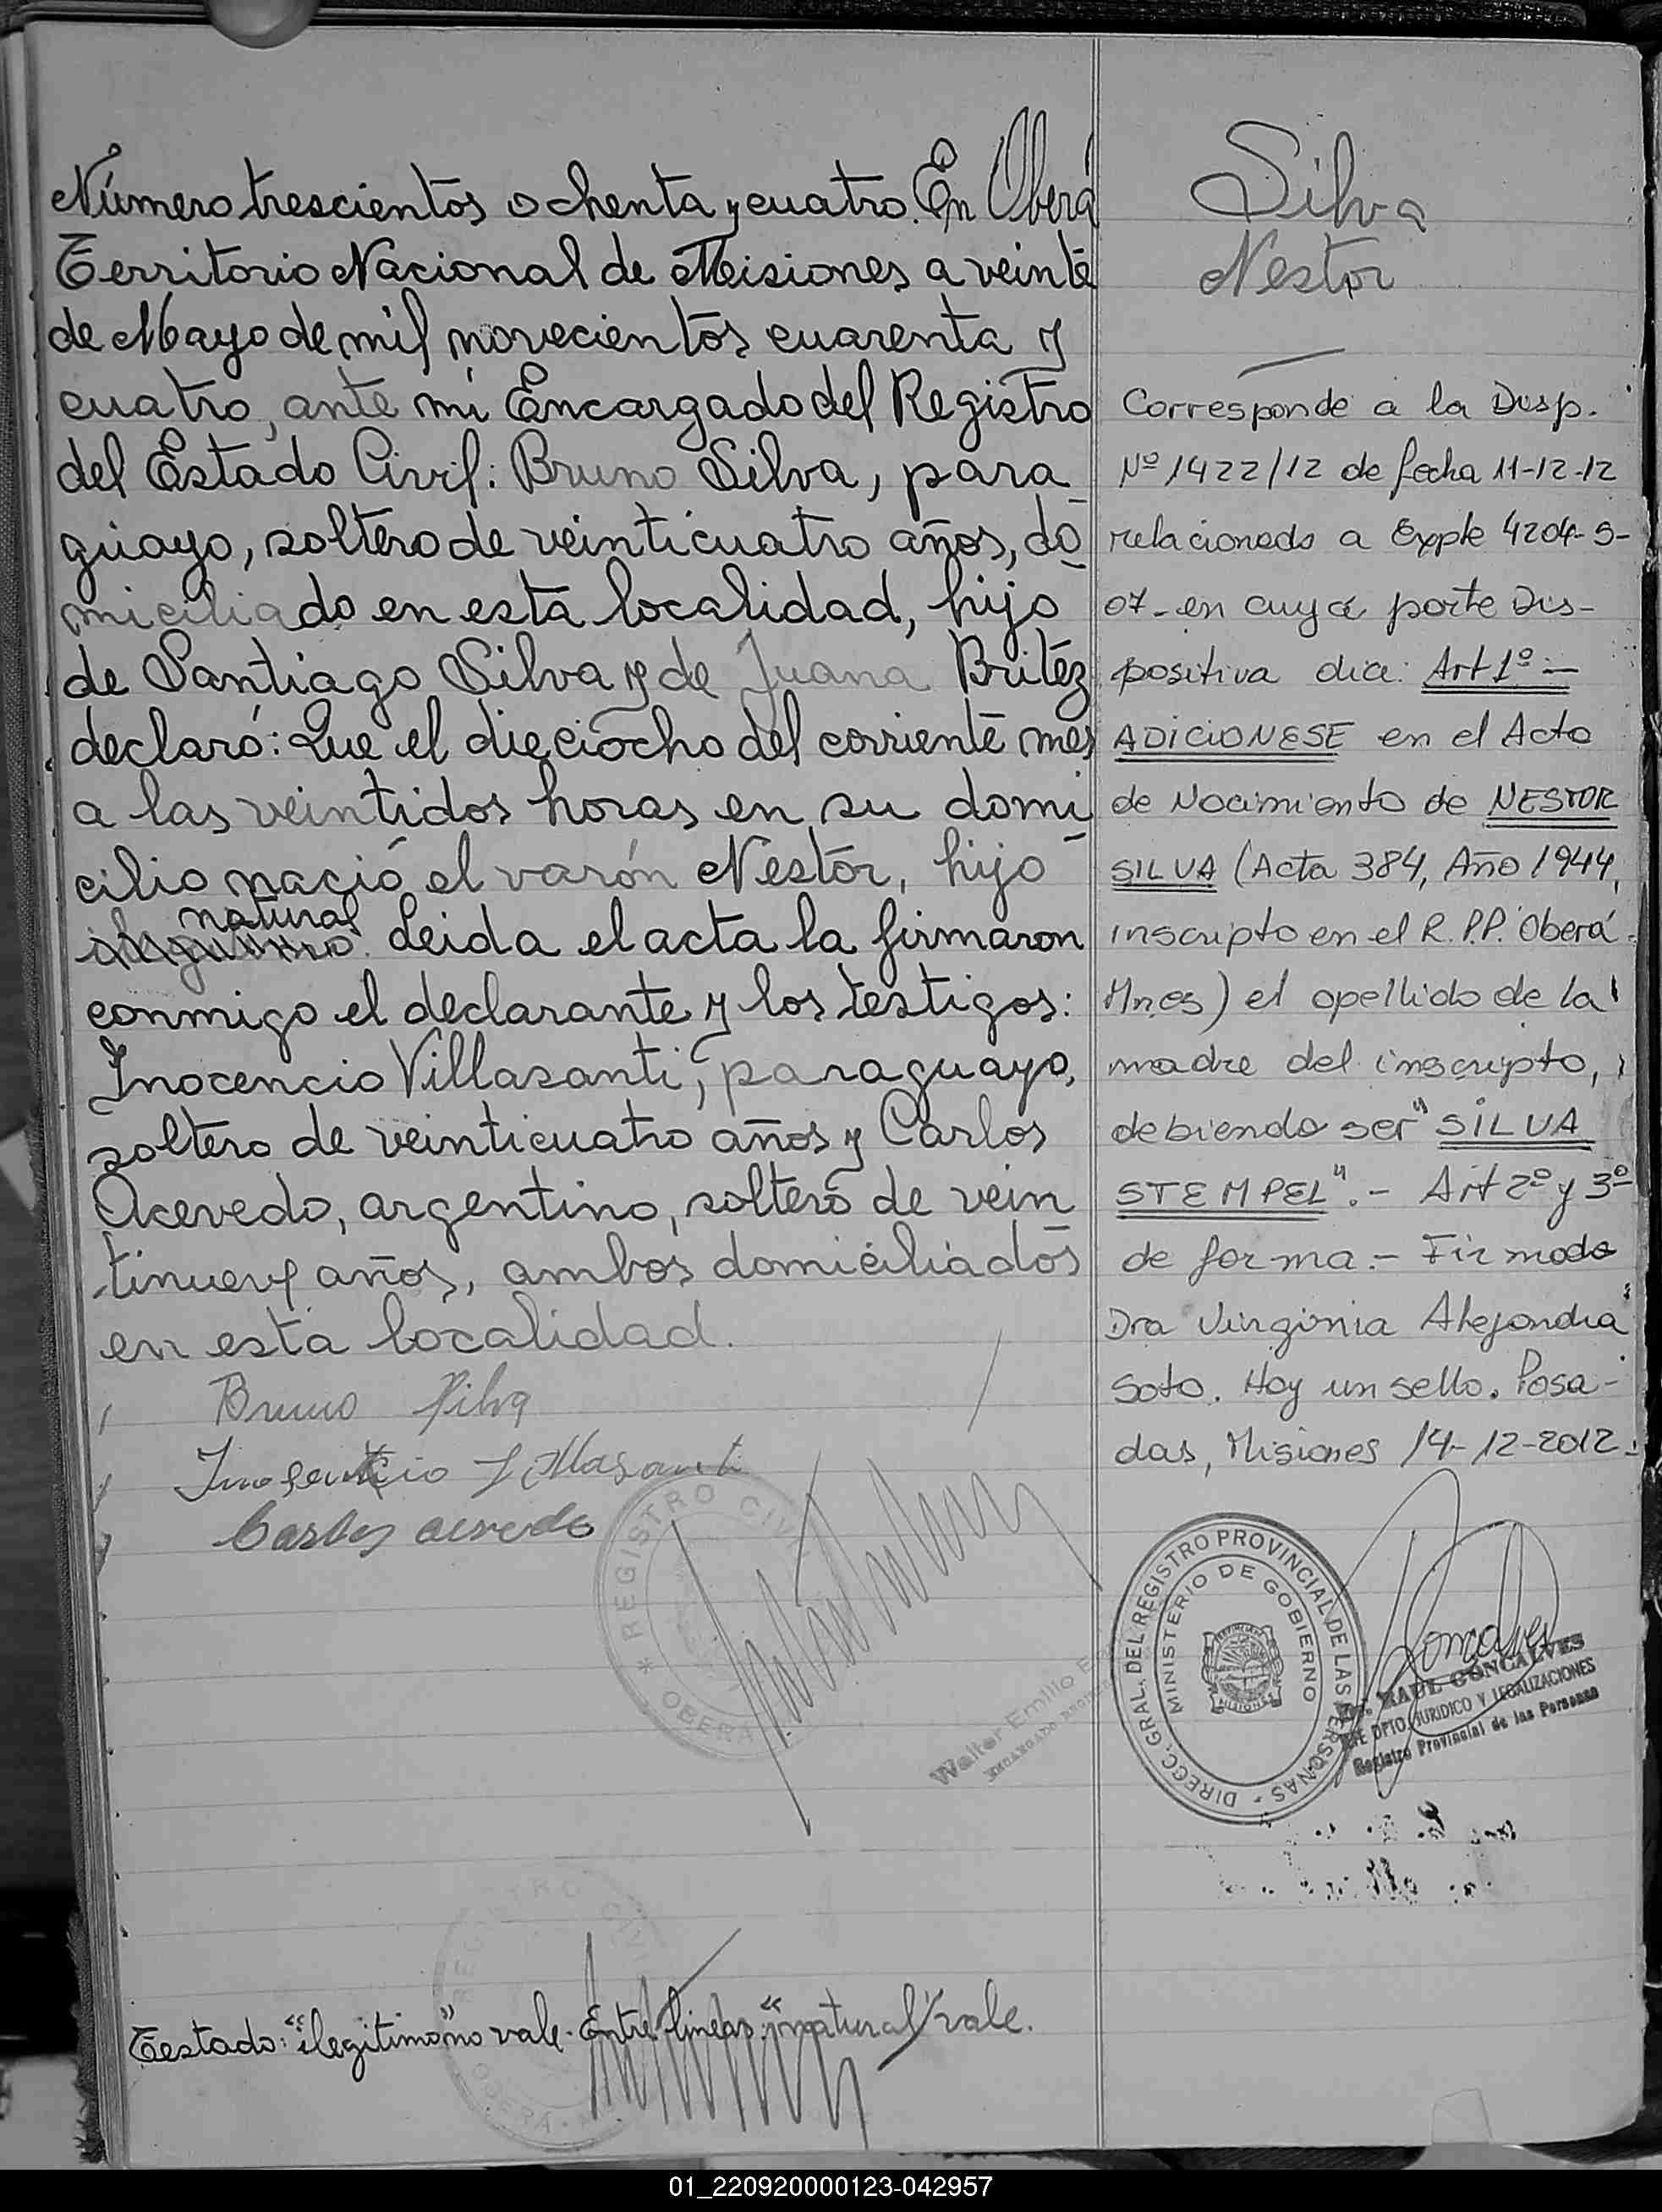 Número trescientos ochenta y cuatro. En Oberá
Territorio Nacional de Misiones a veinte
de Mayo de mil novecientos cuarenta y
cuatro, ante mí Encargado del Registro
del Estado Civil: Bruno Silva, para
guayo, soltero de veinticuatro años, do
miciliado en esta localidad, hijo
de Santiago Silva y de Juana Britéz
declaró: Que el dieciocho del corriente mes
a las veintidos horas en su domi
cilio nació el varón Nestor, hijo
natural
ilegitimo. Leida el acta la firmaron
conmigo el declarante y los testigos:
Inocencio Villasanti, paraguayo,
soltero de veinticuatro años y Carlos
Acevedo, argentino, soltero de vein
tinueve años, ambos domiciliados
en esta localidad.
Bruno Silva
Inosencio Villasanti
Carlos acevedo
* REGISTRO CIVIL
OBERÁ
Walter Emilio
ENCARGADO REGISTRO
REGISTRO CIVIL
OBERÁ
Testado: "ilegitimo" no vale. Entre lineas: "natural" vale.
Silva
Nestor
Corresponde a la Disp.
Nº 1422/12 de fecha 11-12-12
relacionado a Expte 4204-S-
07- en cuya parte Dis-
positiva dice: Art 1º:-
ADICIONESE en el Acta
de Nacimiento de NESTOR
SILVA (Acta 384, Año 1944,
inscripto en el R.P.P. Oberá-
Mnes) el apellido de la
madre del inscripto,
debiendo ser "SILVA
STEMPEL".- Art 2º y 3º
de forma.- Firmado
Dra Virginia Alejandra
Soto. Hay un sello. Posa-
das, Misiones 14-12-2012.
DIRECC. GRAL. DEL REGISTRO PROVINCIAL DE LAS PERSONAS -
MINISTERIO DE GOBIERNO
MISIONES
Goncalves
RAUL GONCALVES
JEFE DPTO. JURIDICO Y LEGALIZACIONES
Registro Provincial de las Personas
01_220920000123-042957